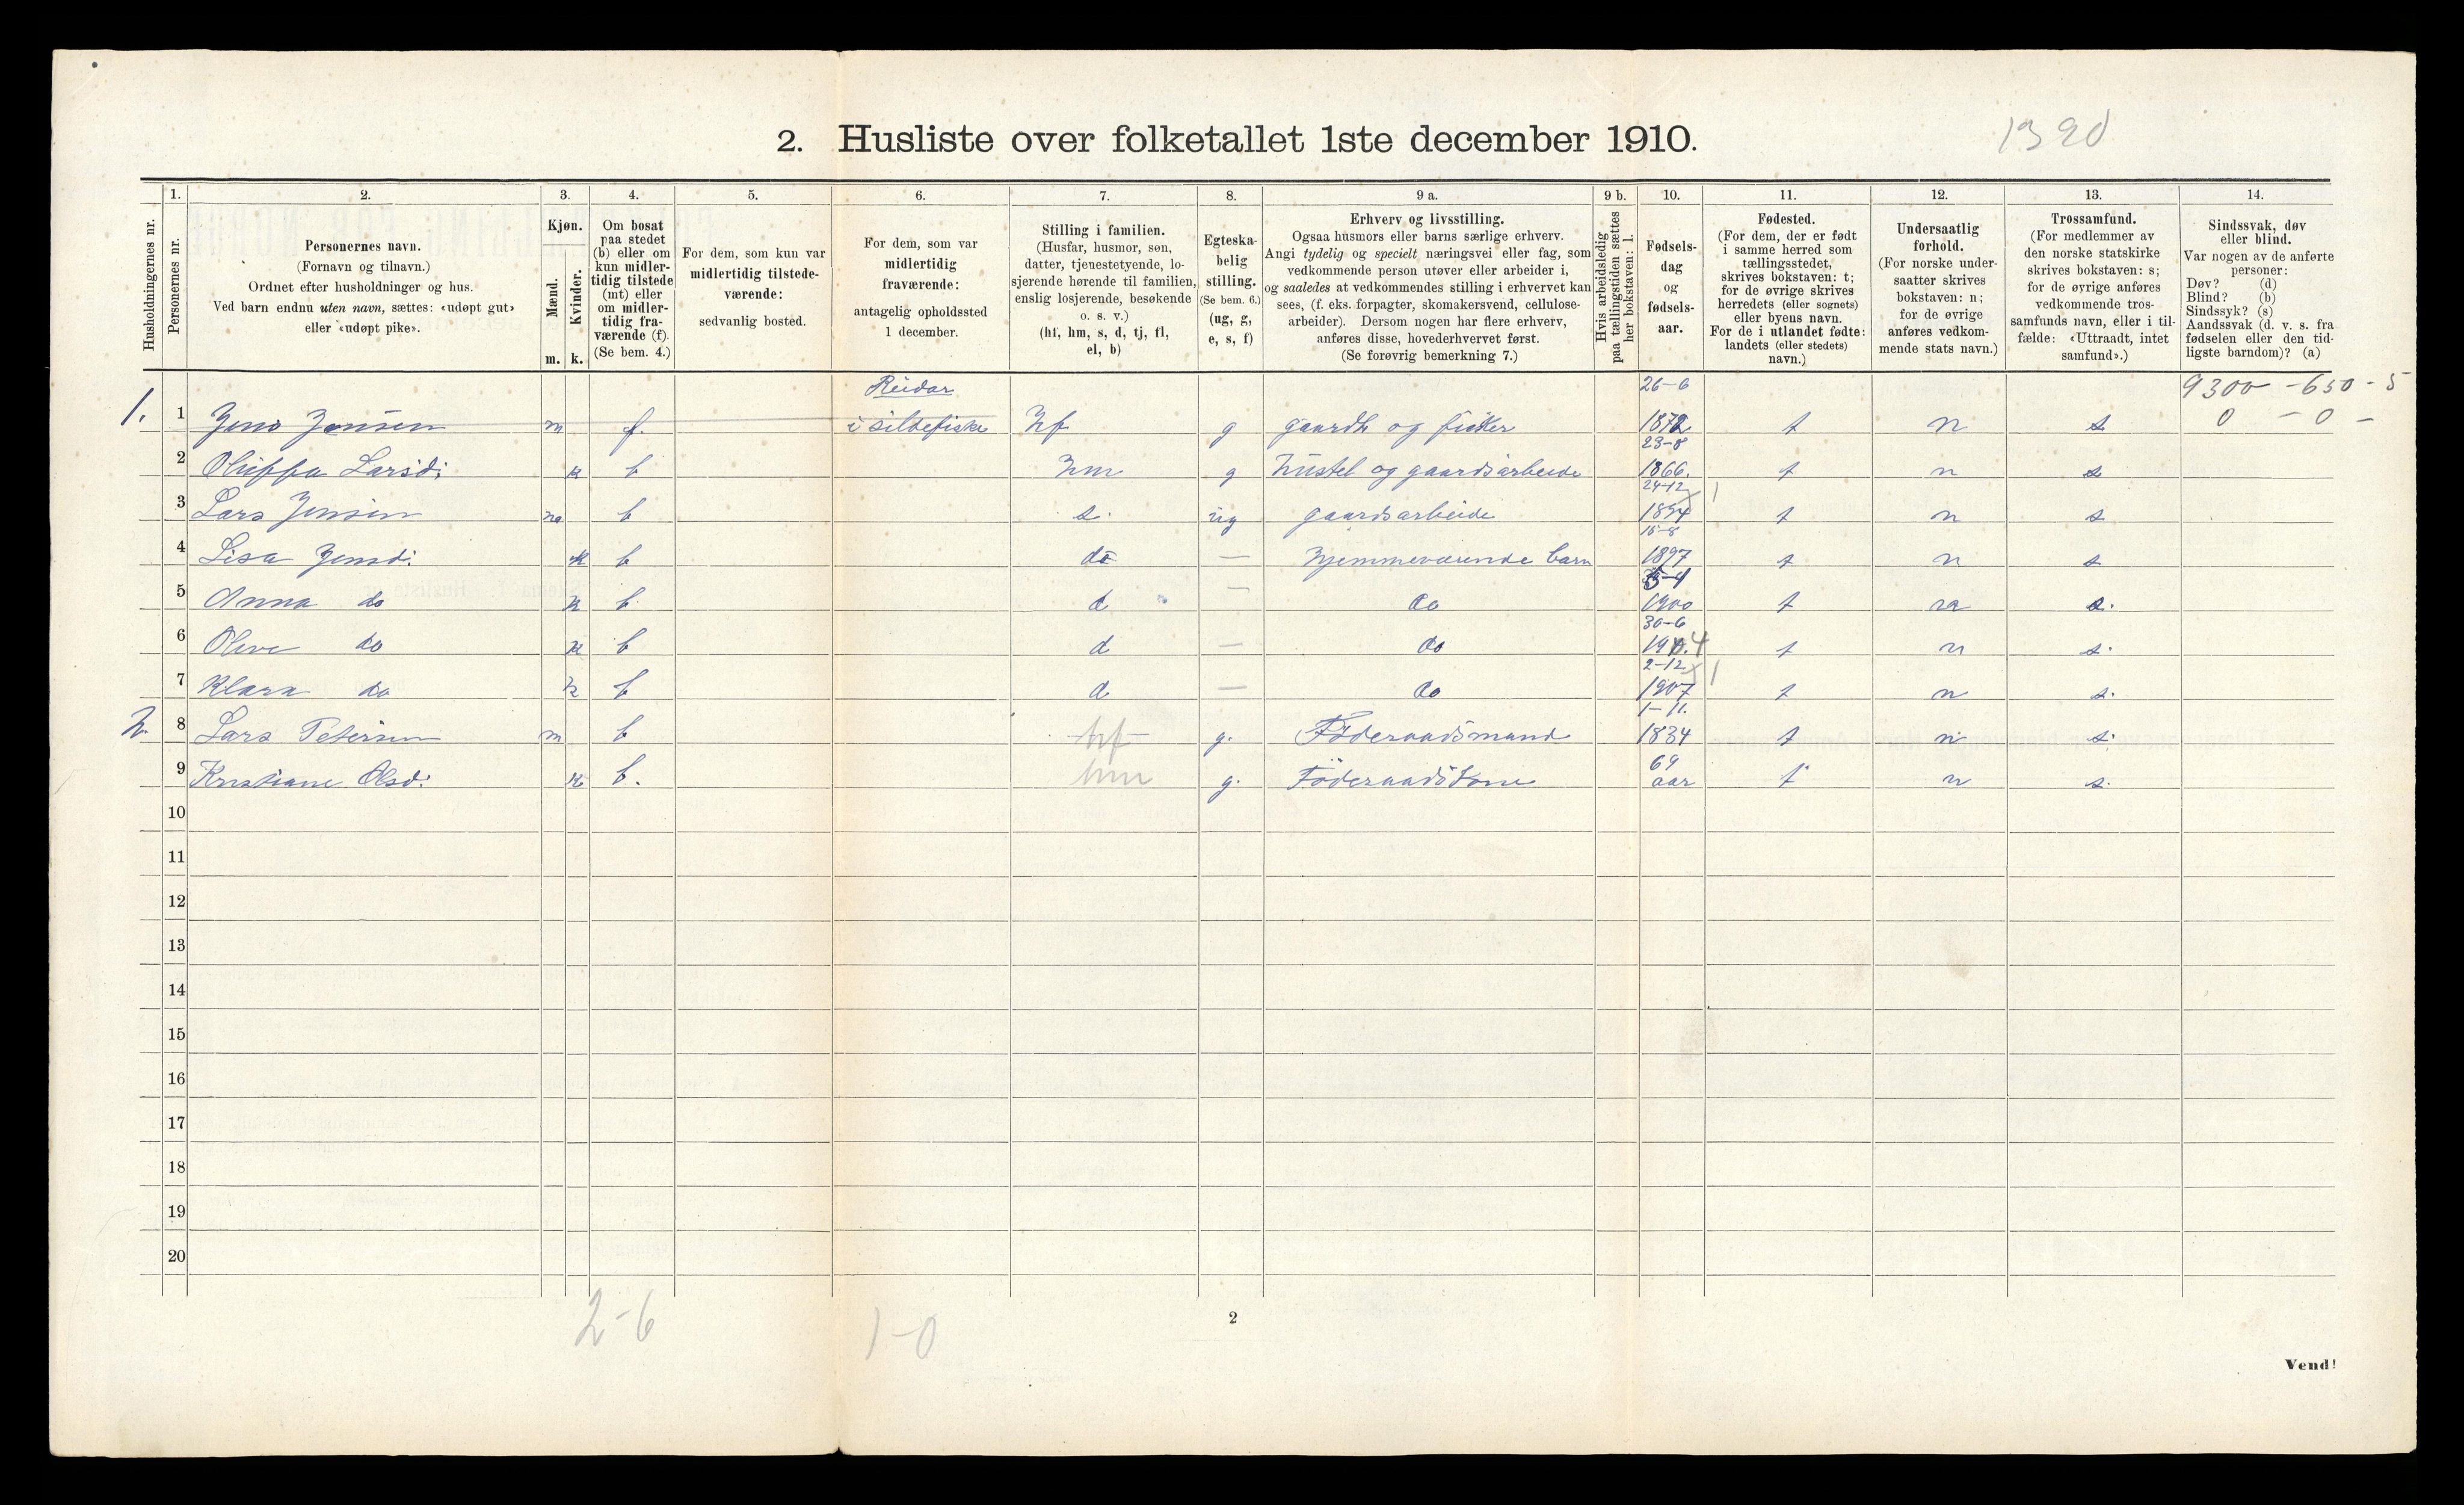 2. Husliste over folketallet 1ste december 1910.
1390
1. 2. 3. 4. 5. 6. 7. 8. 9 a. 9 b. 10. 11. 12. 13. 14.
Husholdningernes nr.
Personernes nr.
Personernes navn.
(Fornavn og tilnavn.)
Ordnet efter husholdninger og hus.
Ved barn endnu uten navn, sættes: «udøpt gut»
eller «udøpt pike».
Kjøn.
Mænd.
Kvinder.
m. k.
Om bosat
paa stedet
(b) eller om
kun midler-
tidig tilstede
(mt) eller
om midler-
tidig fra-
værende (f).
(Se bem. 4.)
For dem, som kun var
midlertidig tilstede-
værende:
sedvanlig bosted.
For dem, som var
midlertidig
fraværende:
antagelig opholdssted
1 december.
Stilling i familien.
(Husfar, husmor, søn,
datter, tjenestetyende, lo-
sjerende hørende til familien,
enslig losjerende, besøkende
o. s. v.)
(hf, hm, s, d, tj, fl,
el, b)
Egteska-
belig
stilling.
(Se bem. 6.)
(ug, g,
e, s, f)
Erhverv og livsstilling.
Ogsaa husmors eller barns særlige erhverv.
Angi tydelig og specielt næringsvei eller fag, som
vedkommende person utøver eller arbeider i,
og saaledes at vedkommendes stilling i erhvervet kan
sees, (f. eks. forpagter, skomakersvend, cellulose-
arbeider). Dersom nogen har flere erhverv,
anføres disse, hovederhvervet først.
(Se forøvrig bemerkning 7.)
Hvis arbeidsledig
paa tællingstiden sættes
her bokstaven: l.
Fødsels-
dag
og
fødsels-
aar.
Fødested.
(For dem, der er født
i samme herred som
tællingsstedet,
skrives bokstaven: t;
for de øvrige skrives
herredets (eller sognets)
eller byens navn.
For de i utlandet fødte:
landets (eller stedets)
navn.)
Undersaatlig
forhold.
(For norske under-
saatter skrives
bokstaven: n;
for de øvrige
anføres vedkom-
mende stats navn.)
Trossamfund.
(For medlemmer av
den norske statskirke
skrives bokstaven: s;
for de øvrige anføres
vedkommende tros-
samfunds navn, eller i til-
fælde: «Uttraadt, intet
samfund».)
Sindssvak, døv
eller blind.
Var nogen av de anførte
personer:
Døv? (d)
Blind? (b)
Sindssyk? (s)
Aandssvak (d. v. s. fra
fødselen eller den tid-
ligste barndom)? (a)
Reidar 26-6 9300 - 650 - 5
1. 1 Jens Jensen m f. i sildefiske hf g gaardb og fisker 1872 t n s 0 - 0 -
23-8
2 Oluffa Larsd: k b hm g husstel og gaardsarbeide 1866. t n s
24-12 1
3 Lars Jensen m b s. ug gaardsarbeide 1894 t n s
15-8
4 Lisa Jensd: k b d — hjemmeværende barn 1897 t n s
5-4
5 Anna do k b. d — do 1900 t n s.
30-6
6 Oline do k b d — do 190.4 t n s.
2-12 1
7 Klara do k b d — do 1907 t n s.
1-11.
2. 8 Lars Petersen m b hf g. Föderaadsmand 1834 t n s.
69
9 Kristiane Olsd: k b. hm g. Föderaadskone aar t n s.
10
11
12
13
14
15
16
17
18
19
20
2-6 1-0
2
Vend!